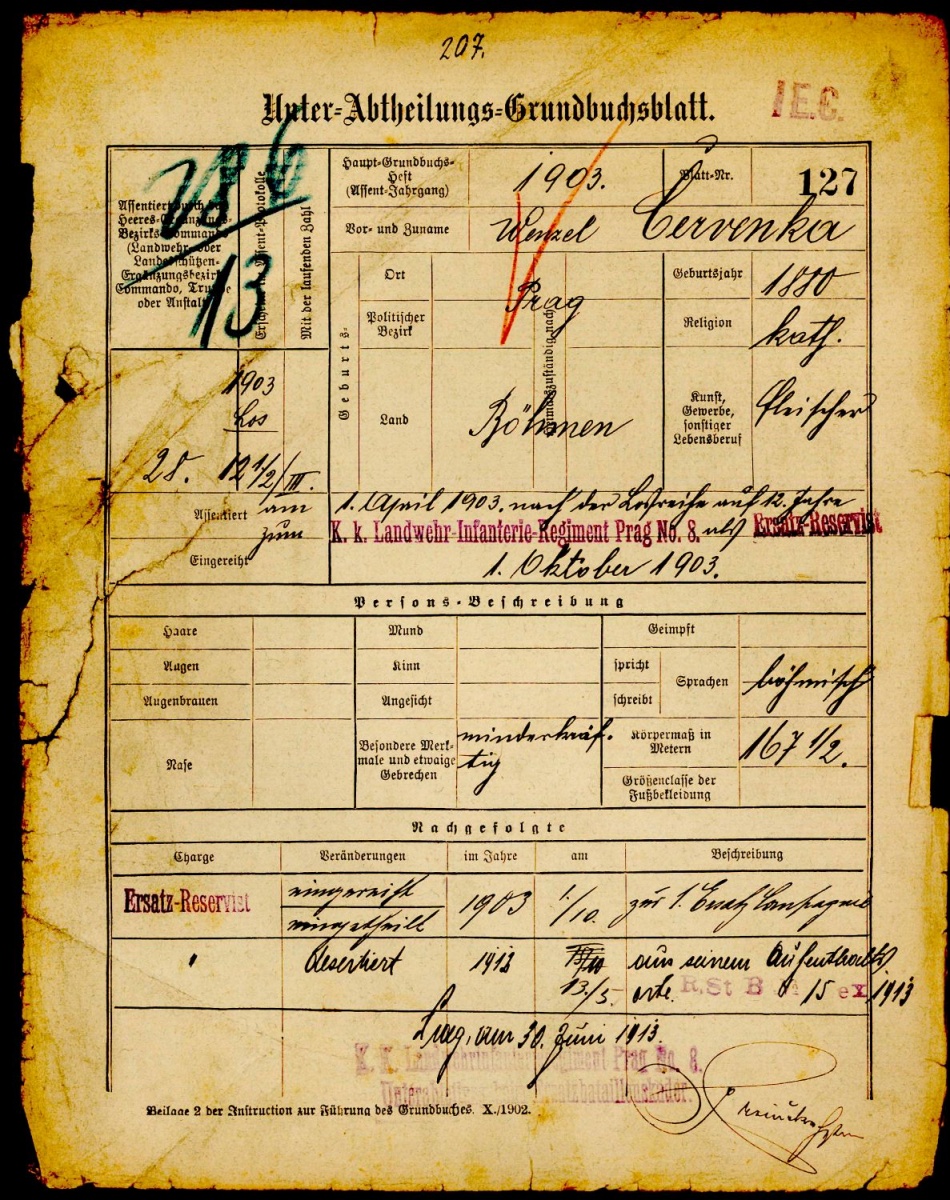 207.
Unter-Abtheilungs-Grundbuchsblatt.
I E.C.
28 6
13
Assentiert durch das Heeres-Ergänzungs-Bezirks-Commando (Landwehr- oder Landesschützen-Ergänzungsbezirks-Commando, Truppe oder Anstalt)
Erscheint im Assent-Protokolle
Mit der laufenden Zahl
Haupt-Grundbuchs-Heft (Assent-Jahrgang)
1903.
Blatt-Nr.
127
Vor- und Zuname
Wenzel Červenka
Geburts-
Ort
Prag
Politischer Bezirk
Land
Böhmen
Heimatszuständig nach
Geburtsjahr
1880
Religion
kath.
Kunst, Gewerbe, sonstiger Lebensberuf
Fleischer
1903
Los
28. 12 1/2/III.
Assentiert am 1. April 1903. nach der Losreihe auf 12. Jahre
zum K. k. Landwehr-Infanterie-Regiment Prag No. 8. als Ersatz-Reservist
Eingereiht 1. Oktober 1903.
Persons-Beschreibung
Haare
Mund
Geimpft
Augen
Kinn
spricht
schreibt
Sprachen
böhmisch
Augenbrauen
Angesicht
Nase
Besondere Merkmale und etwaige Gebrechen
minderkräf-
tig
Körpermaß in Metern
167 1/2.
Größenclasse der Fußbekleidung
Nachgefolgte
Charge
Veränderungen
im Jahre
am
Beschreibung
Ersatz-Reservist
eingereiht
eingetheilt
1903
1./10.
zur 1. Ersatz Compagnie
" desertiert 1913
13./5. aus seinem Aufenthalts
orte. 15 ex 1913
Prag, am 30. Juni 1913.
K. K. Landwehrinfanterie-Regiment Prag No. 8.
Beilage 2 der Instruction zur Führung des Grundbuches. X./1902.